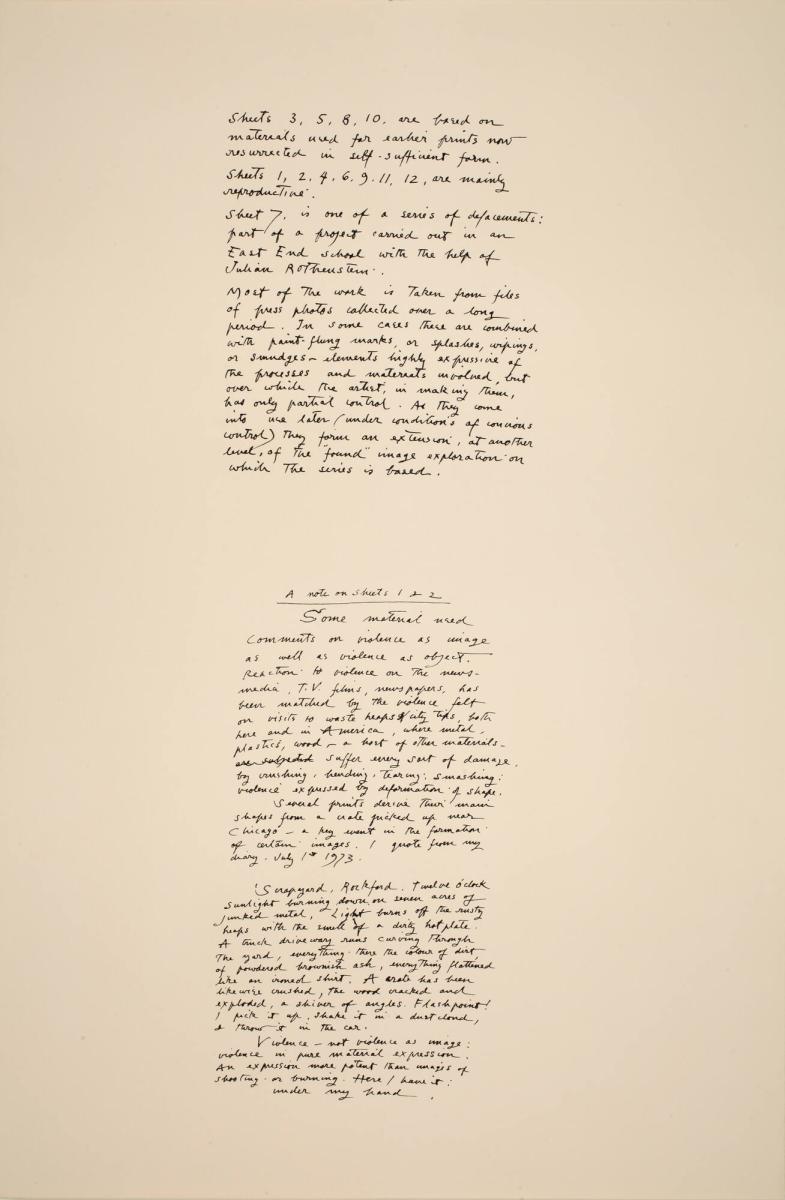 Sheets 3, 5, 8, 10, are based on
materials used for earlier prints now
resurrected in self-sufficient form.
Sheets 1, 2, 4, 6, 9, 11, 12, are mainly
reproductive.
Sheet 7, is one of a series of defacements:
part of a project carried out in an
East End school with the help of
Julian Rothenstein.
Most of the work is taken from files
of press photos collected over a long
period. In some cases these are combined
with paint-flung marks, or splashes, wipings,
or smudges – elements highly expressive of
the processes and materials involved, but
over which the artist, in making them,
has only partial control. As they come
into use later (under condition's of concious
control) they form an extension, at another
level, of the "found" image exploration on
which the series is based.
A note on Sheets 1 & 2
Some material used
comments on violence as image
as well as violence as object.
Reaction to violence on the news-
media, T.V. films, newspapers, has
been matched by the violence felt
on visits to waste heaps & city tips, both
here and in America, where metal,
plastics, wood – a host of other materials –
are subjected suffer every sort of damage,
by crushing, bending, tearing, smashing:
violence expressed by deformation of shape.
Several prints derive their main
shapes from a crate picked up near
Chicago – a key event in the formation
of certain images. I quote from my
diary. July 1st 1973.
'Scrapyard, Rockford. Twelve o'clock
sunlight burning down on seven acres of
junked metal, Light burns off the rusty
heaps with the smell of a dirty hotplate.
A truck driveway runs curving through
the yard, everything there the colour of dirt,
of powdered brownish ash, everything flattened
like an ironed shirt. A crate has been
likewise crushed, the wood cracked and
exploded, a shiver of angles. Flashpoint!
I pick it up, shake it in a dust cloud,
& throw it in the car.
Violence – not violence as image:
violence in pure material expression.
An expression more potent than images of
shooting or burning. Here I have it:
under my hand.